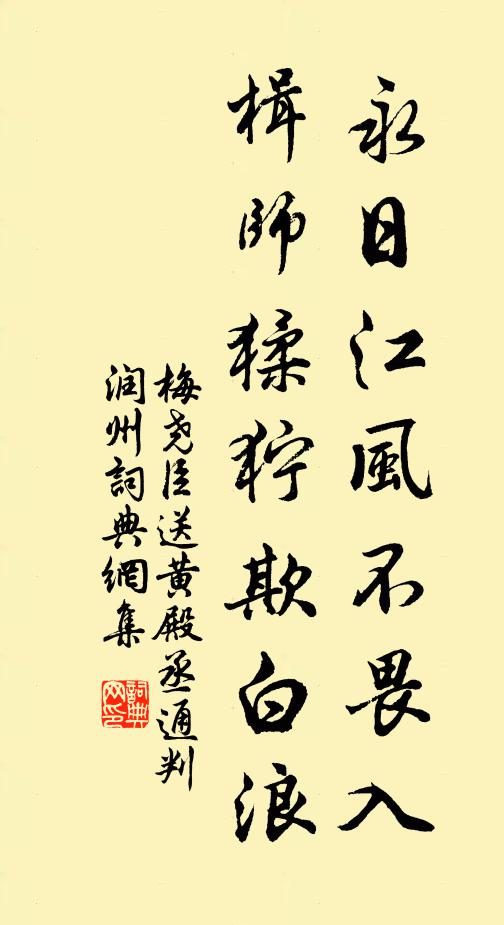 永日江風不畏入
楫師猱狞欺白浪
梅尧臣送黄殿丞通判
润州詞典網集
詞典
网印